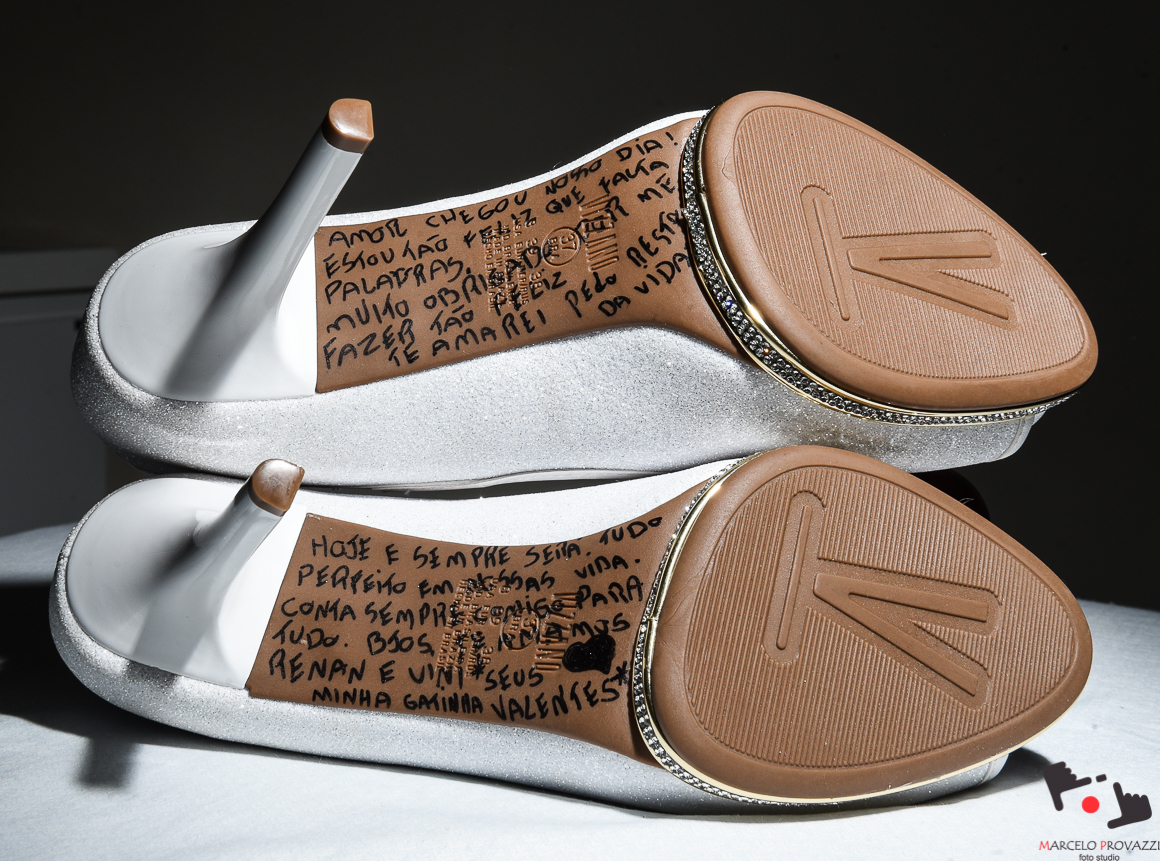 AMOR CHEGOU NOSSO DIA!
ESTOU TÃO FELIZ QUE FALTA
PALAVRAS.
MUITO OBRIGADO POR ME
FAZER TÃO FELIZ
TE AMAREI PELO RESTO
DA VIDA
VIZZANO
37
HOJE E SEMPRE SERA. TUDO
PERFEITO EM NOSSAS VIDA.
CONTA SEMPRE COMIGO PARA
TUDO. BJOS, TE AMAMOS
RENAN E VINI *SEUS
MINHA GATINHA VALENTES*
VIZZANO
MARCELO PROVAZZI
foto studio